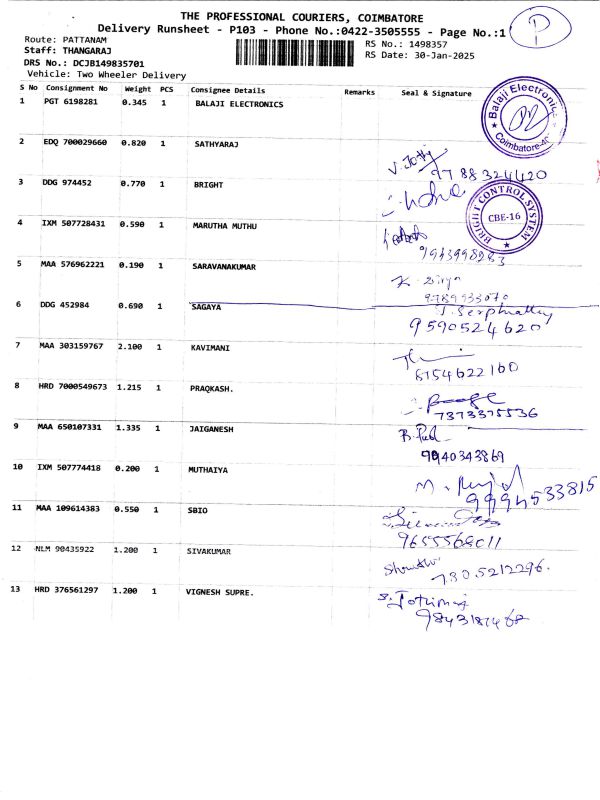 THE PROFESSIONAL COURIERS, COIMBATORE
Delivery Runsheet - P103 - Phone No.:0422-3505555 - Page No.:1
P
Route: PATTANAM
RS No.: 1498357
Staff: THANGARAJ
RS Date: 30-Jan-2025
DRS No.: DCJB149835701
Vehicle: Two Wheeler Delivery
S No Consignment No Weight PCS Consignee Details Remarks Seal & Signature
1 PGT 6198281 0.345 1 BALAJI ELECTRONICS
Balaji Electronics
Coimbatore-
2 EDQ 700029660 0.820 1 SATHYARAJ
9788324420
3 DDG 974452 0.770 1 BRIGHT
BRIGHT CONTROL SYSTEM
CBE-16
4 IXM 507728431 0.590 1 MARUTHA MUTHU
9943998283
5 MAA 576962221 0.190 1 SARAVANAKUMAR
K. Divya
9789933070
6 DDG 452984 0.690 1 SAGAYA
9590524620
7 MAA 303159767 2.100 1 KAVIMANI
8754622160
8 HRD 7000549673 1.215 1 PRAQKASH.
7373375536
9 MAA 650107331 1.335 1 JAIGANESH
9940343869
10 IXM 507774418 0.200 1 MUTHAIYA
9994533815
11 MAA 109614383 0.550 1 SBIO
9655566011
12 NLM 90435922 1.200 1 SIVAKUMAR
7305212296.
13 HRD 376561297 1.200 1 VIGNESH SUPRE.
S. Jothimani
9843187468